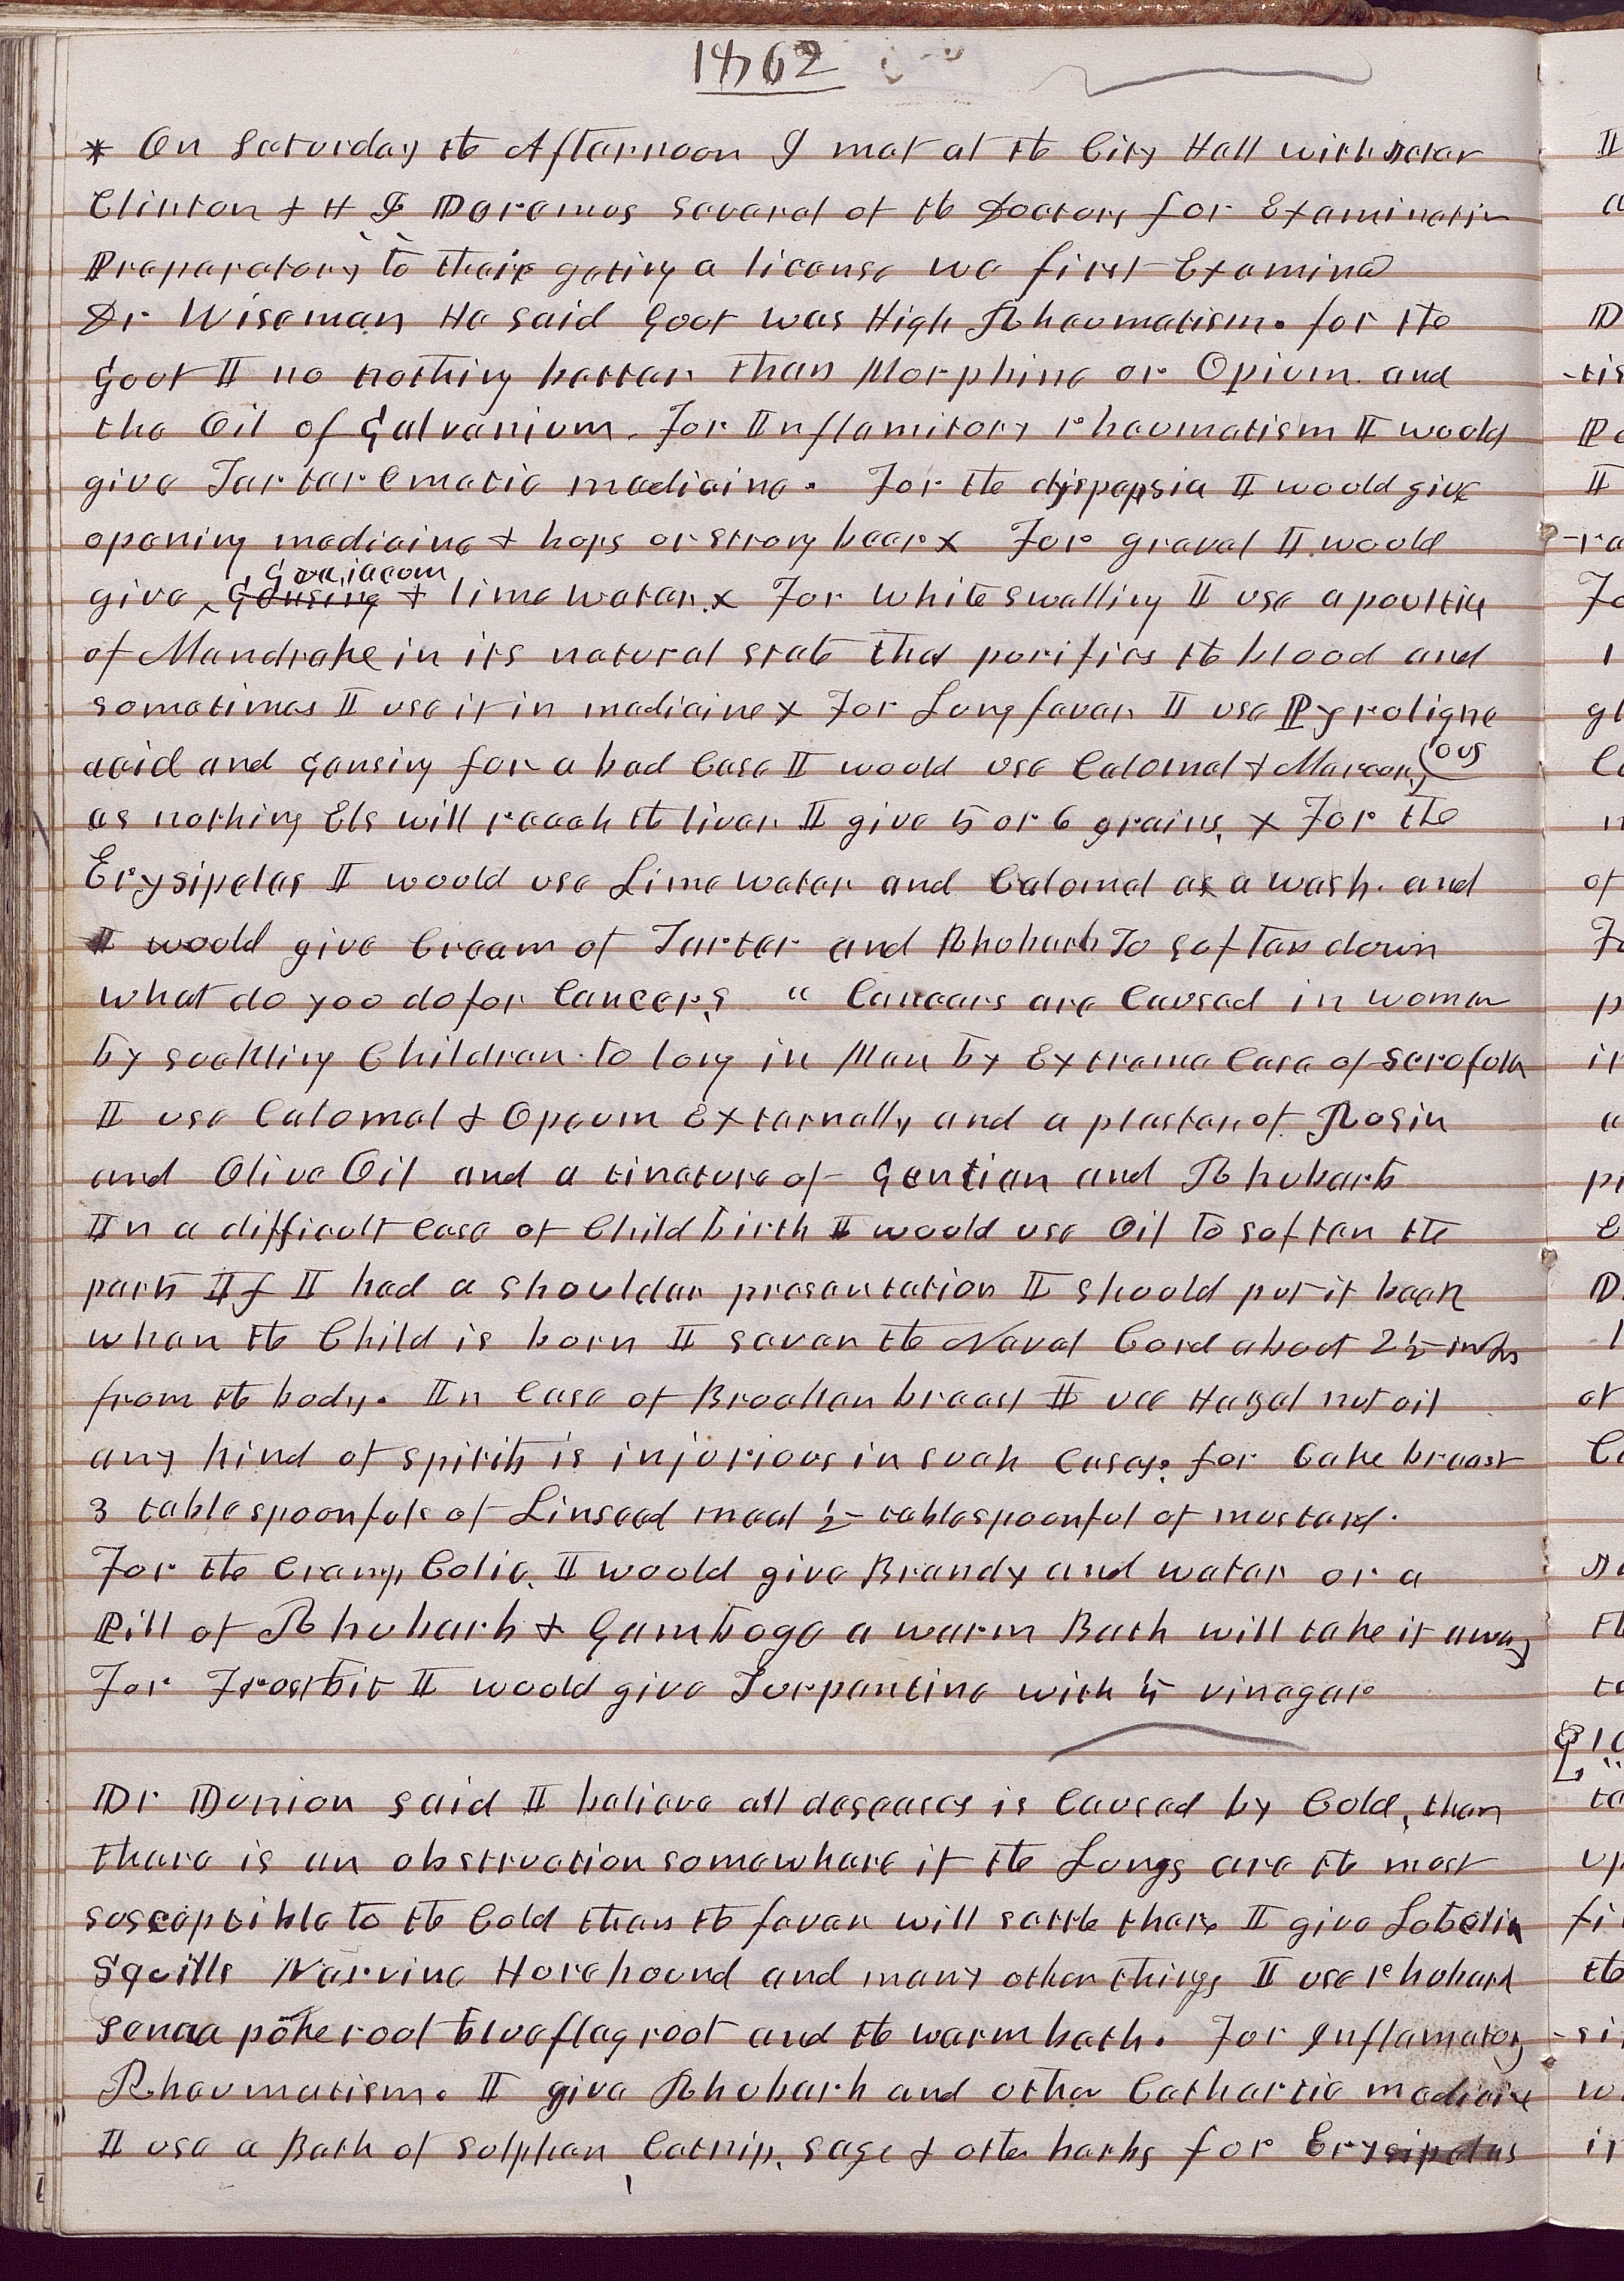 1862
* On Saturday the Afternoon I met at the City Hall with Jeter
Clinton & H I Doremus several of the Doctors for Examination
Preparatory to their geting a license we first Examined
Dr Wiseman He said Gout was High Rheumatism. for the
Gout I no nothing better than Morphine or Opium. and
the Oil of Galvanium. For Inflamitory rheumatism I would
give Tartar Emetic medicine. For the dyspepsia I would give
opening medicine & hops or strong beer x For gravel I would
Guaiacom
give ^ Gensing & lime water. x For White swelling I use a poultice
of Mandrake in its natural state that purifies the blood and
sometimes I use it in medicine x For Lung fever I use Pyroligne
ous
acid and Gensing for a bad Case I would use Calomel & Mercury
as nothing Els will reach the liver I give 5 or 6 grains, x For the
Erysipelas I would use Lime water and Calomel as a wash. and
I would give Cream of Tarter and Rhubarb To soften down
what do you do for Cancers, " Cancers are Caused in women
by suckling Children to long in Man by Extreme Case of Scrofula
I use Calomel & Opeum Externally and a plaster of Rosin
and Olive Oil and a tincture of Gentian and Rhubarb
In a difficult Case of Child birth I would use Oil to soften the
parts If I had a shoulder presentation I should put it back
when the Child is born I sever the Navel Cord about 2 1/2 inches
from the body. In Case of Broaken breast I use Hazel nut oil
any kind of spirits is injurious in such Cases. for Cake breast
3 table spoonfuls of Linseed meal 1/2 tablespoonful of mustard.
For the Cramp Colic, I would give Brandy and water or a
Pill of Rhubarb & Gamboge a warm Bath will take it away
For Frostbit I would give Turpentine with vinegar
Dr Dunion said I believe all deseases is Caused by Cold, then
there is an obstruction somewhere if the Lungs are the most
susceptible to the Cold then the fever will settle there I give Lobelia
Squills Nervine Horehound and many other things I use rhubarb
senna poke root blueflag root and the warm bath. For Inflamatory
Rheumatism. I give Rhubarb and other Cathartic medicine
I use a Bath of sulpher, Catnip, sage & other harbs for Erysipelas